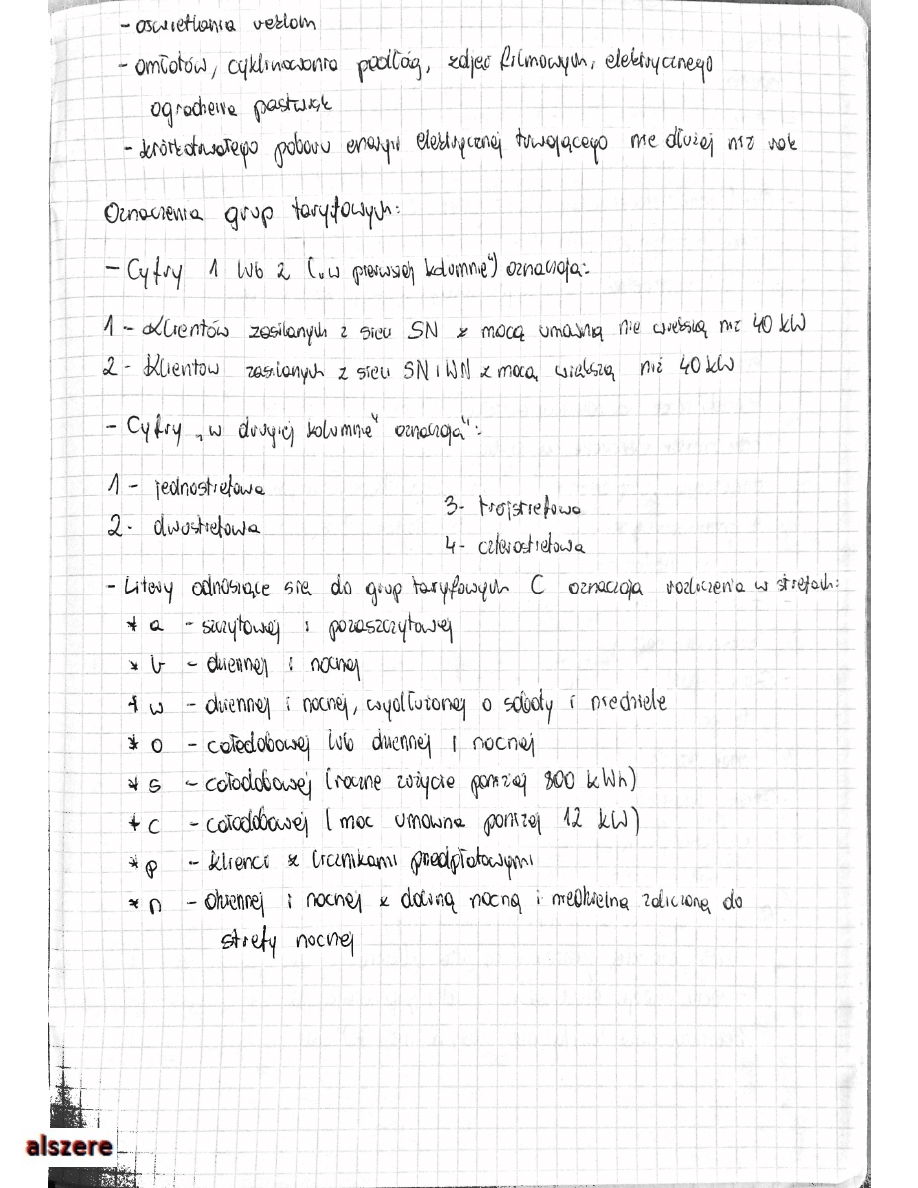 - oświetlania reklam
- omłotów, cyklinowania podłóg, zdjęć filmowych, elektrycznego
ogrodzenia pastwisk
- krótkotrwałego poboru energii elektrycznej trwającego nie dłużej niż rok
Oznaczenia grup taryfowych:
- Cyfry 1 lub 2 („w pierwszej kolumnie") oznaczają:
1 - Klientów zasilanych z sieci SN z mocą umowną nie większą niż 40 kW
2 - Klientów zasilanych z sieci SN i WN z mocą większą niż 40 kW
- Cyfry „w drugiej kolumnie" oznaczają":
1 - jednostrefowa
2 - dwustrefowa
3 - trójstrefowa
4 - czterostrefowa
- Litery odnoszące się do grup taryfowych C oznaczają rozliczenia w strefach:
* a - szczytowej i pozaszczytowej
* b - dziennej i nocnej
* w - dziennej i nocnej, wydłużonej o soboty i niedziele
* o - całodobowej lub dziennej i nocnej
* s - całodobowej (roczne zużycie poniżej 800 kWh)
* c - całodobowej (moc umowna poniżej 12 kW)
* p - klienci z licznikami przedpłatowymi
* n - dziennej i nocnej z doliną nocną i niedzielną zaliczoną do
strefy nocnej
alszere